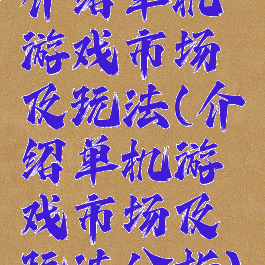 介绍单机
游戏市场
及玩法(介
绍单机游
戏市场及
玩法分析)